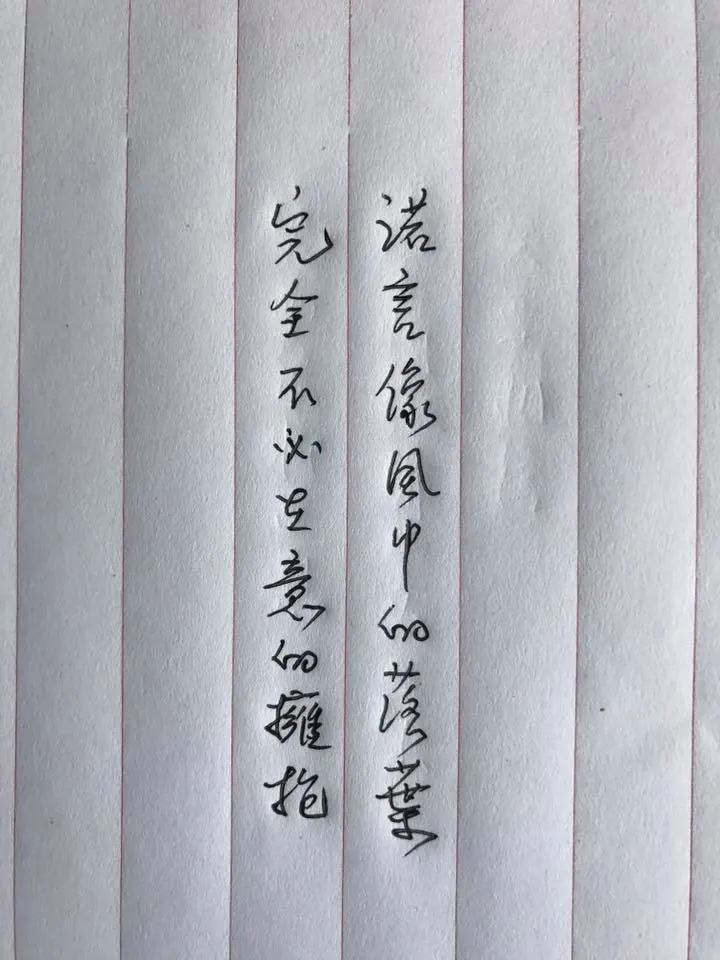 诺言像风中的落葉
完全不必在意的擁抱